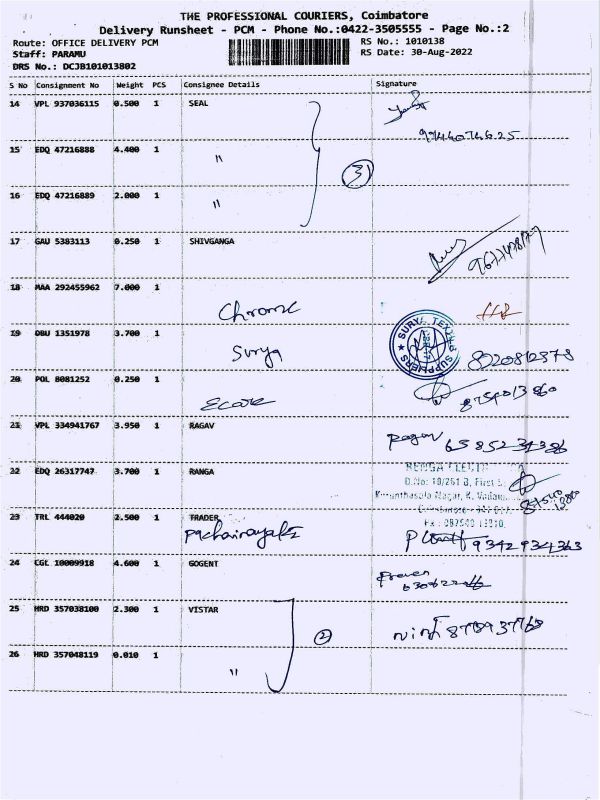 THE PROFESSIONAL COURIERS, Coimbatore
Delivery Runsheet - PCM - Phone No.:0422-3505555 - Page No.:2
Route: OFFICE DELIVERY PCM RS No.: 1010138
Staff: PARAMU RS Date: 30-Aug-2022
DRS No.: DCJB101013802
S No Consignment No Weight PCS Consignee Details Signature
14 VPL 937036115 0.500 1 SEAL
9744074625
15 EDQ 47216888 4.400 1 "
3
16 EDQ 47216889 2.000 1 "
17 GAU 5383113 0.250 1 SHIVGANGA
18 MAA 292455962 7.000 1
Chrome
SURYA TEXTILE SUPPLIERS
19 DBU 1351978 3.700 1
Surya
20 POL 8081252 0.250 1
Ecare
21 VPL 334941767 3.950 1 RAGAV
22 EDQ 26317747 3.700 1 RANGA
D.No: 18/261 B, First
23 TRL 444020 2.500 1 TRADER
9342934363
24 CGL 10009918 4.600 1 GOGENT
25 HRD 357038100 2.300 1 VISTAR
2
26 HRD 357048119 0.010 1 "